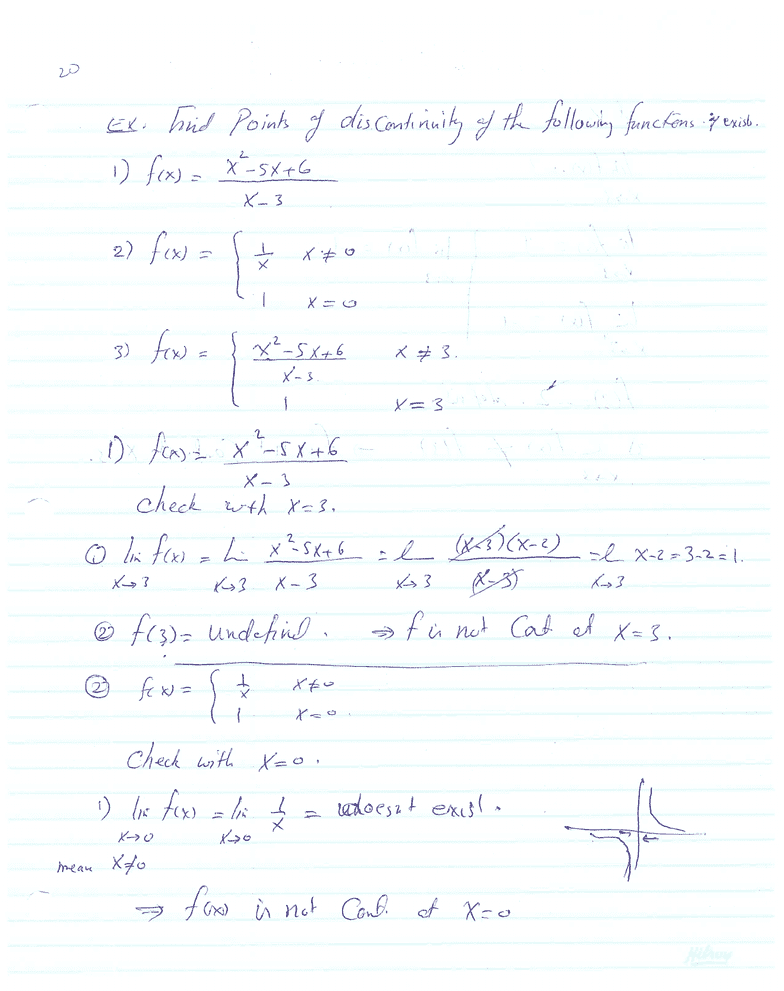 20
Ex. Find Points of discontinuity of the following functions if exist.
1) f(x) = x²-5x+6 / x-3
2) f(x) = { 1/x x ≠ 0
1 x = 0
3) f(x) = { x²-5x+6 / x-3 x ≠ 3.
1 x = 3
1) f(x) = x²-5x+6 / x-3
Check with x=3.
① lim f(x) = lim x²-5x+6 / x-3 = l (x-3)(x-2) / (x-3) = l x-2 = 3-2 = 1.
x→3 x→3 x→3 x→3
② f(3) = undefind. ⇒ f is not Cot at x=3.
② f(x) = { 1/x x≠0
1 x=0.
Check with x=0.
1) lim f(x) = lim 1/x = doesnt exist.
x→0 x→0
mean x≠0
⇒ f(x) is not Cont. at x=0